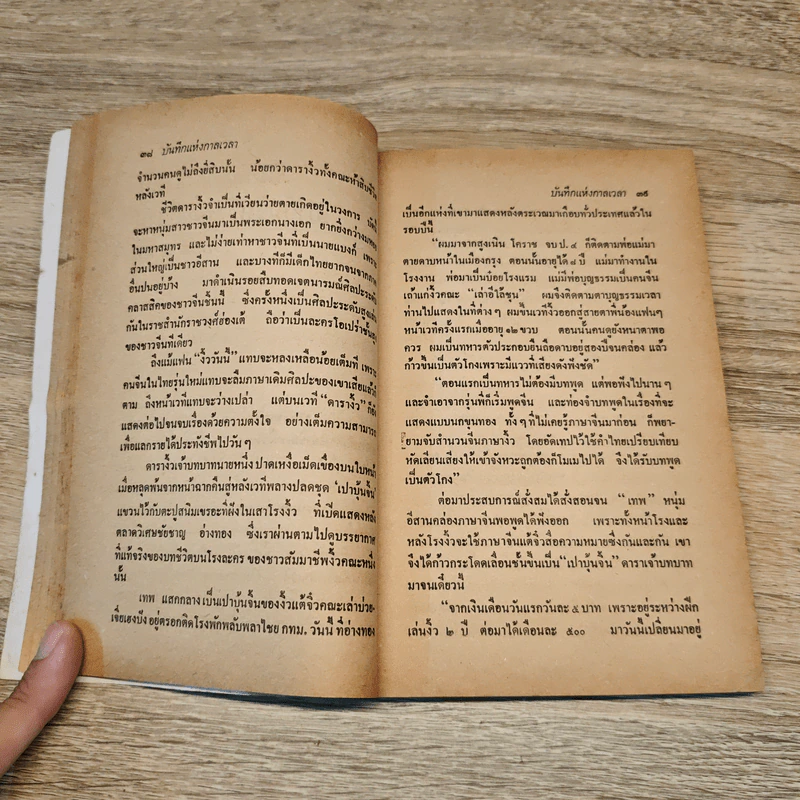 ๓๘ บันทึกแห่งกาลเวลา
จำนวนคนดูไม่ถึงยี่สิบนั้น น้อยกว่าดารางิ้วทั้งคณะห้าสิบชีวิต
หลังเวที
ชีวิตดารางิ้วจำเป็นที่เวียนว่ายตายเกิดอยู่ในวงการ
จะหาหนุ่มสาวชาวจีนมาเป็นพระเอกนางเอก ยากยิ่งกว่างมหอย
ในมหาสมุทร และไม่ง่ายเท่าหาชาวจีนที่เป็นนายแบงก์ เพราะ
ส่วนใหญ่เป็นชาวอีสาน และบางทีก็มีเด็กไทยยากจนจากภาค
อื่นปนอยู่บ้าง มาดำเนินรอยสืบทอดเจตนารมณ์ศิลปะระดับ
คลาสสิคของชาวจีนชิ้นนี้ ซึ่งครั้งหนึ่งเป็นศิลปะระดับสูงเล่น
กันในราชสำนักราชวงศ์ฮ่องเต้ ถือว่าเป็นละครโอเปร่าชั้นสูง
ของชาวจีนทีเดียว
ถึงแม้แฟน “งิ้ววันนี้” แทบจะหลงเหลือน้อยเต็มที เพราะ
คนจีนในไทยรุ่นใหม่แทบจะลืมภาษาเดิมศิลปะของเขาเสียแล้วก็
ตาม ถึงหน้าเวทีแทบจะว่างเปล่า แต่บนเวที “ดารางิ้ว” ก็ยัง
แสดงต่อไปจนจบเรื่องด้วยความตั้งใจ อย่างเต็มความสามารถ
เพื่อแลกรายได้ประทังชีพไปวัน ๆ
ดารางิ้วเจ้าบทบาทนายหนึ่ง ปาดเหงื่อเม็ดเขื่องบนใบหน้า
เมื่อหลุดพ้นจากหน้าฉากคืนสู่หลังเวทีพลางปลดชุด ‘เปาบุ้นจิ้น’
แขวนไว้กับตะปูสนิมเขรอะที่ฝังในเสาโรงงิ้ว ที่เปิดแสดงหลัง
ตลาดวิเศษชัยชาญ อ่างทอง ซึ่งเราผ่านตามไปดูบรรยากาศ
ที่แท้จริงของบทชีวิตบนโรงละคร ของชาวสัมมาชีพงิ้วคณะหนึ่ง
นั้น
เทพ แสกกลาง เป็นเปาบุ้นจิ้นของงิ้วแต้จิ๋วคณะเล่าบ้วย-
เจี่ยเฮงบึง อยู่ตรอกติดโรงพักพลับพลาไชย กทม. วันนี้ ที่อ่างทอง
บันทึกแห่งกาลเวลา ๓๙
เป็นอีกแห่งที่เขามาแสดงหลังตระเวณมาเกือบทั่วประเทศแล้วใน
รอบปีนี้
“ผมมาจากสูงเนิน โคราช จบ ป. ๔ ก็ติดตามพ่อแม่มา
ตายดาบหน้าในเมืองกรุง ตอนนั้นอายุได้ ๘ ปี แม่มาทำงานใน
โรงงาน พ่อมาเป็นบ๋อยโรงแรม แม่มีพ่อบุญธรรมเป็นคนจีน
เถ้าแก่งิ้วคณะ “เล่าอี่ไล้ชุน” ผมจึงติดตามตาบุญธรรมเวลา
ท่านไปแสดงในที่ต่าง ๆ ผมขึ้นเวทีงิ้วออกสู่สายตาพี่น้องแฟนๆ
หน้าเวทีครั้งแรกเมื่ออายุ ๑๒ ขวบ ตอนนั้นคนดูยังหนาตาพอ
ควร ผมเป็นทหารตัวประกอบยืนถือดาบอยู่สองปีจนคล่อง แล้ว
ก้าวขึ้นเป็นตัวโกงเพราะมีแววที่เสียงดังฟังชัด”
“ตอนแรกเป็นทหารไม่ต้องมีบทพูด แต่พอฟังไปนาน ๆ
และจำเอาจากรุ่นพี่ก็เริ่มพูดจีน และท่องจำบทพูดในเรื่องที่จะ
แสดงแบบนกขุนทอง ทั้ง ๆ ที่ไม่เคยรู้ภาษาจีนมาก่อน ก็พยา-
ยามจับสำนวนจีนภาษางิ้ว โดยอัดเทปไว้ใช้คำไทยเปรียบเทียบ
หัดเลียนเสียงให้เข้าจังหวะถูกต้องก็โมเมไปได้ จึงได้รับบทพูด
เป็นตัวโกง”
ต่อมาประสบการณ์สั่งสมได้สั่งสอนจน “เทพ” หนุ่ม
อีสานคล่องภาษาจีนพอพูดได้ฟังออก เพราะทั้งหน้าโรงและ
หลังโรงงิ้วจะใช้ภาษาจีนแต้จิ๋วสื่อความหมายซึ่งกันและกัน เขา
จึงได้ก้าวกระโดดเลื่อนชั้นขึ้นเป็น“เปาบุ้นจิ้น” ดาราเจ้าบทบาท
มาจนเดี๋ยวนี้
“จากเงินเดือนวันแรกวันละ ๕ บาท เพราะอยู่ระหว่างฝึก
เล่นงิ้ว ๒ ปี ต่อมาได้เดือนละ ๕๐๐ มาวันนี้เปลี่ยนมาอยู่